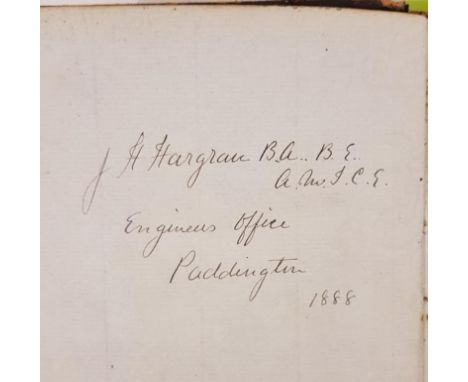 J H Hargrau B.A.. B.E.
A.M.I.C.E.
Engineers Office
Paddington
1888